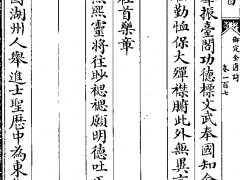 御定全唐詩
卷一百七
振臺閣功德標文武奉國知
勤恤保大殫襟腑此外無異
首樂章
熙靈將往眇禗禗願明德吐
湖州人舉進士聖歷中為東